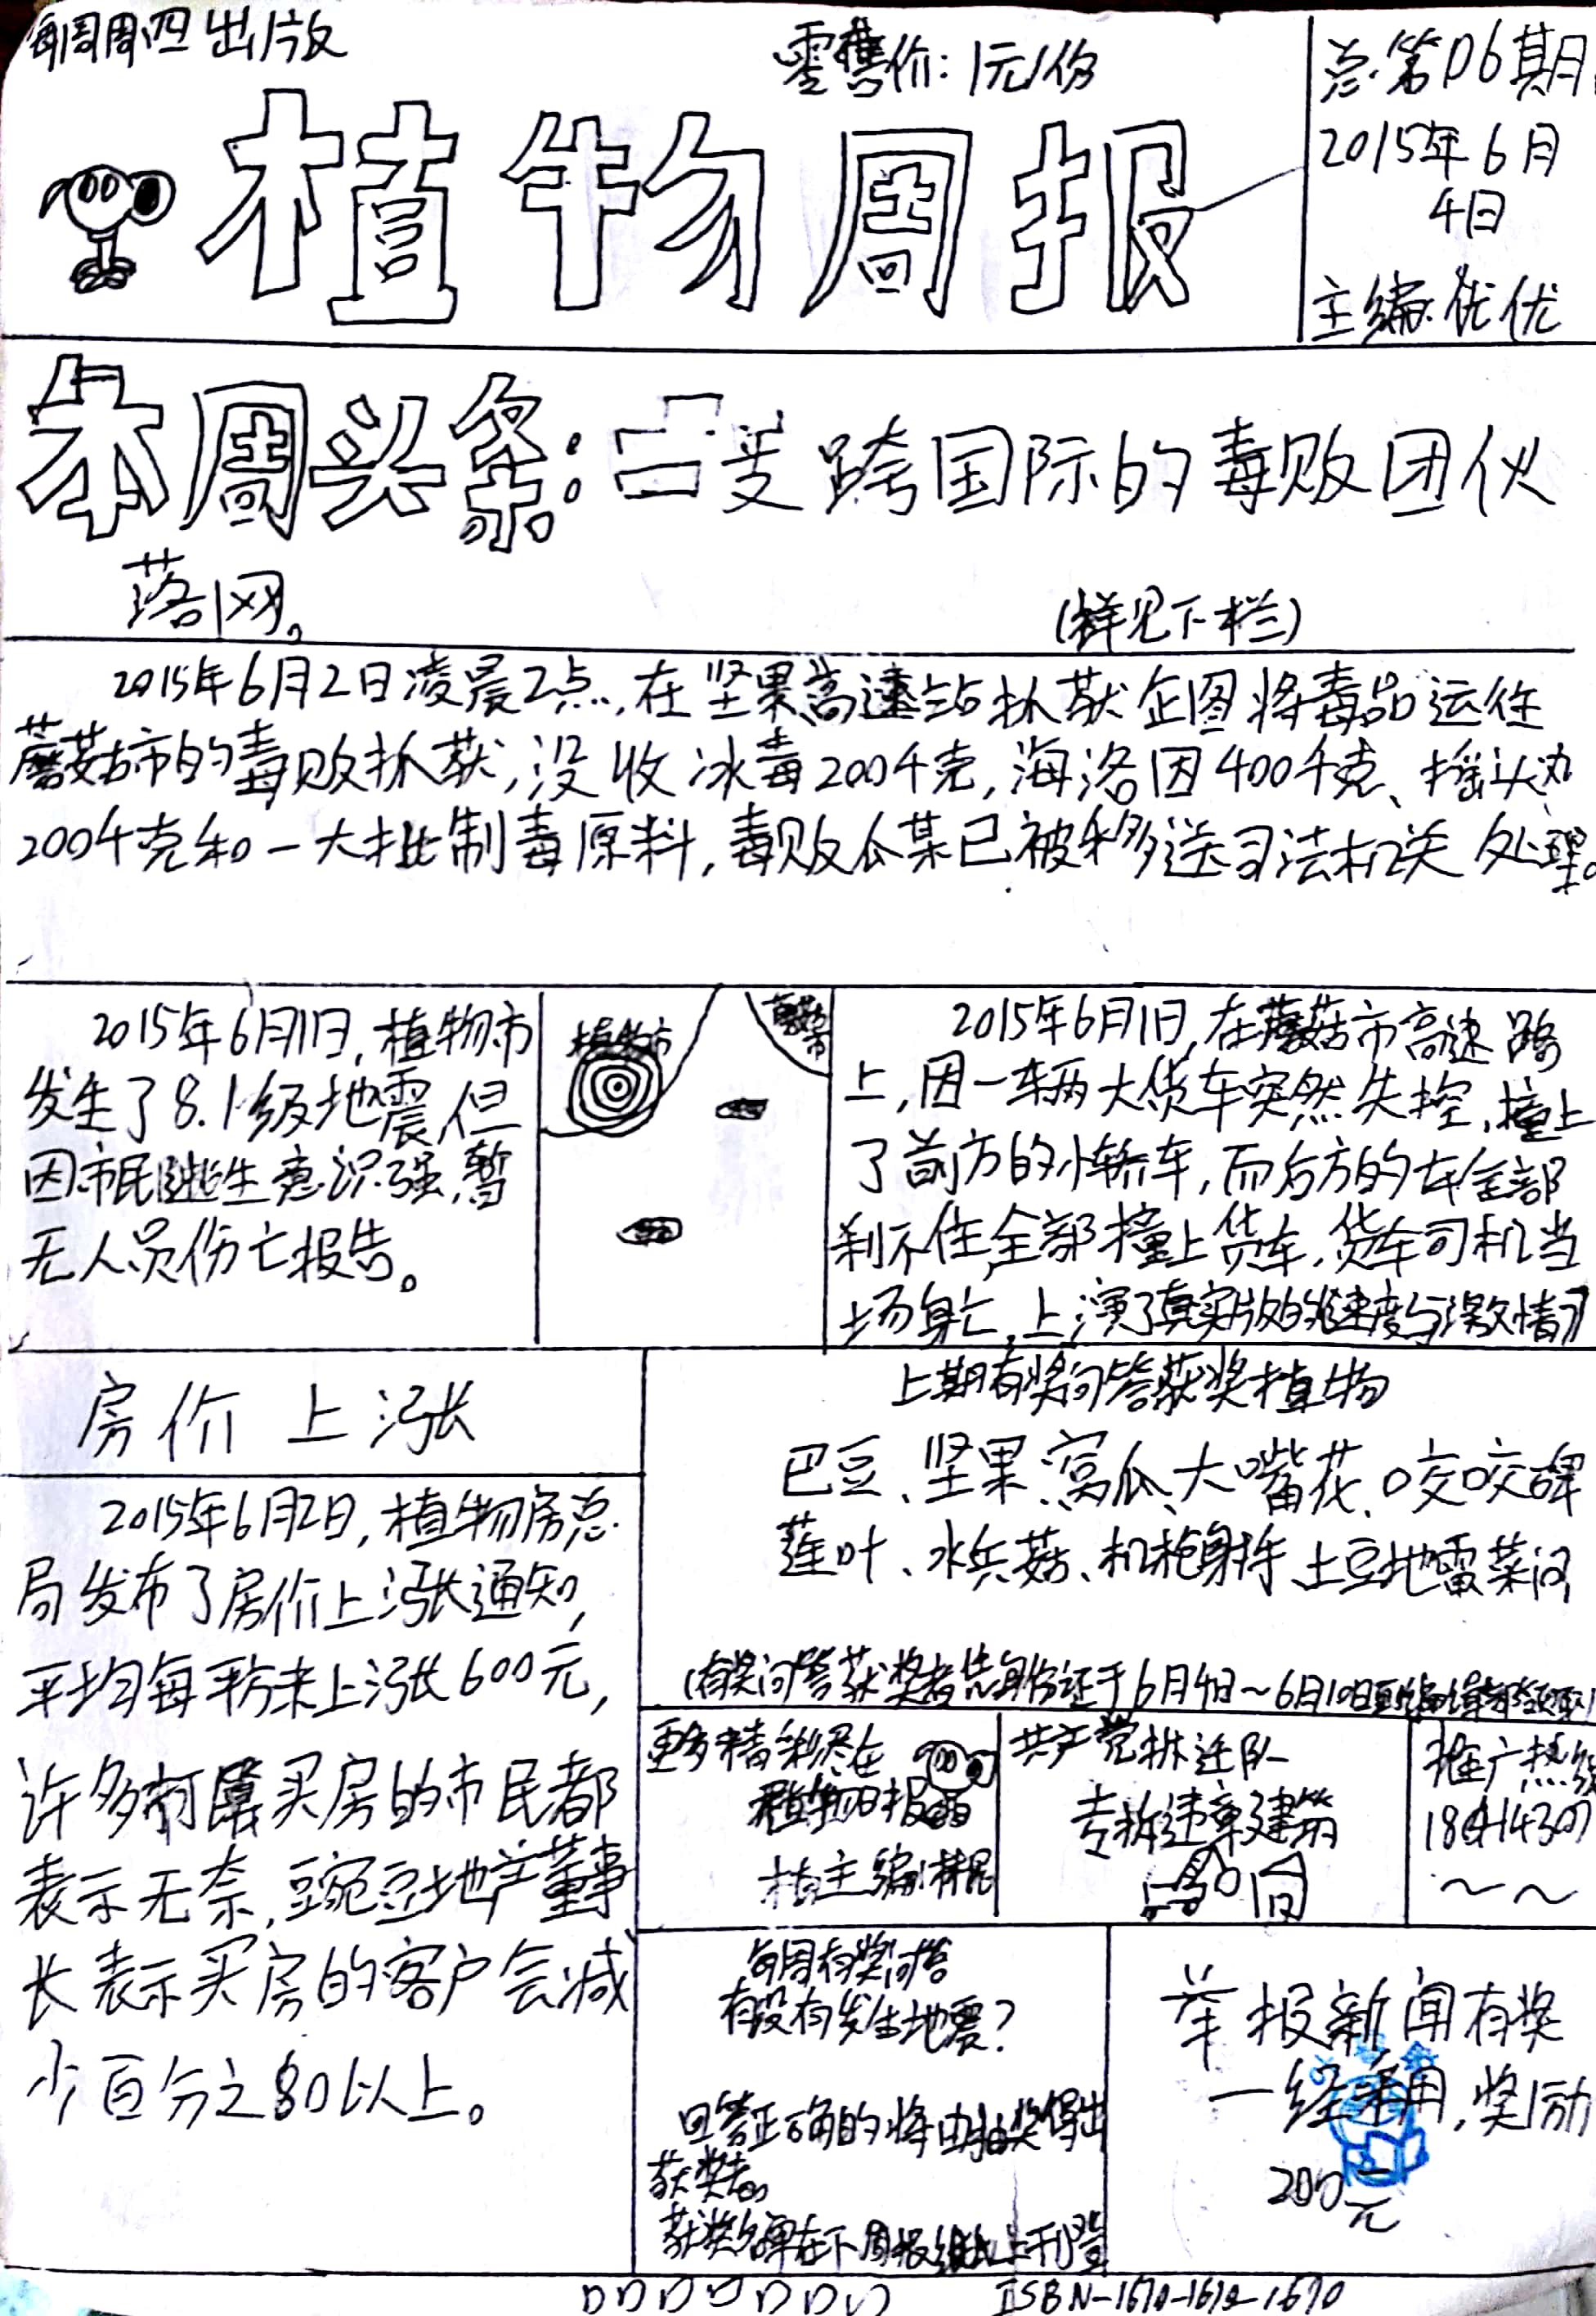 每周周四出版
零售价：1元/份
总第06期
2015年6月
4日
主编：优优
植物周报
本周头条：一支跨国际的毒贩团伙
落网。
(详见下栏)
2015年6月2日凌晨2点，在坚果高速站抓获企图将毒品运往
蘑菇市的毒贩抓获，没收冰毒200千克，海洛因400千克、摇头丸
200千克和一大批制毒原料，毒贩瓜某已被移送司法机关处理。
2015年6月1日，植物市
发生了8.1级地震，但
因市民逃生意识强，暂
无人员伤亡报告。
植物市
蘑菇市
2015年6月1日，在蘑菇市高速路
上，因一辆大货车突然失控，撞上
了前方的小轿车，而后方的车全部
刹不住，全部撞上货车，货车司机当
场身亡，上演了真实版的《速度与激情》
房价上涨
2015年6月2日，植物房总
局发布了房价上涨通知，
平均每平方米上涨600元，
许多打算买房的市民都
表示无奈，豌豆地产董事
长表示买房的客户会减
少百分之80以上。
上期有奖问答获奖植物
巴豆、坚果、窝瓜、大嘴花、咬咬碑
莲叶、水兵菇、机枪射手、土豆地雷、菜问
(有奖问答获奖者凭身份证于6月4日~6月10日到编辑部领取)
更多精彩尽在
植物日报
植主编
共产党拆迁队
专拆违章建筑
推广热线
每周有奖问答
有没有发生地震？
回答正确的将由抽奖得出
获奖者。
获奖名单在下周报纸上刊登
举报新闻有奖
一经采用，奖励
200元
ISBN-1670-1670-1670